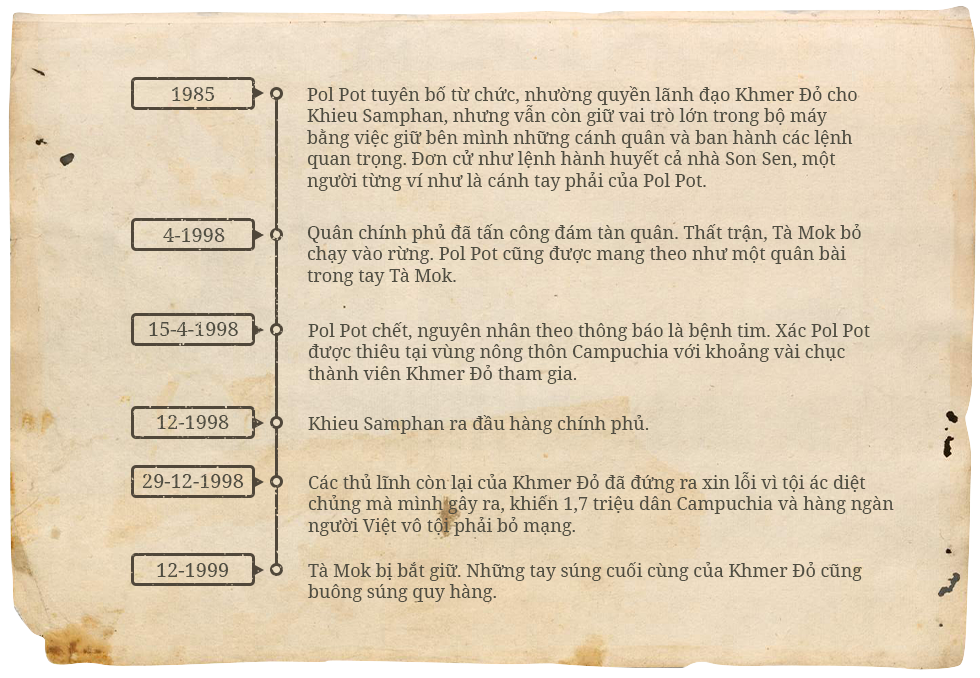 1985
Pol Pot tuyên bố từ chức, nhường quyền lãnh đạo Khmer Đỏ cho
Khieu Samphan, nhưng vẫn còn giữ vai trò lớn trong bộ máy
bằng việc giữ bên mình những cánh quân và ban hành các lệnh
quan trọng. Đơn cử như lệnh hành huyết cả nhà Son Sen, một
người từng ví như là cánh tay phải của Pol Pot.
4-1998
Quân chính phủ đã tấn công đám tàn quân. Thất trận, Tà Mok bỏ
chạy vào rừng. Pol Pot cũng được mang theo như một quân bài
trong tay Tà Mok.
15-4-1998
Pol Pot chết, nguyên nhân theo thông báo là bệnh tim. Xác Pol Pot
được thiêu tại vùng nông thôn Campuchia với khoảng vài chục
thành viên Khmer Đỏ tham gia.
12-1998
Khieu Samphan ra đầu hàng chính phủ.
29-12-1998
Các thủ lĩnh còn lại của Khmer Đỏ đã đứng ra xin lỗi vì tội ác diệt
chủng mà mình gây ra, khiến 1,7 triệu dân Campuchia và hàng ngàn
người Việt vô tội phải bỏ mạng.
12-1999
Tà Mok bị bắt giữ. Những tay súng cuối cùng của Khmer Đỏ cũng
buông súng quy hàng.